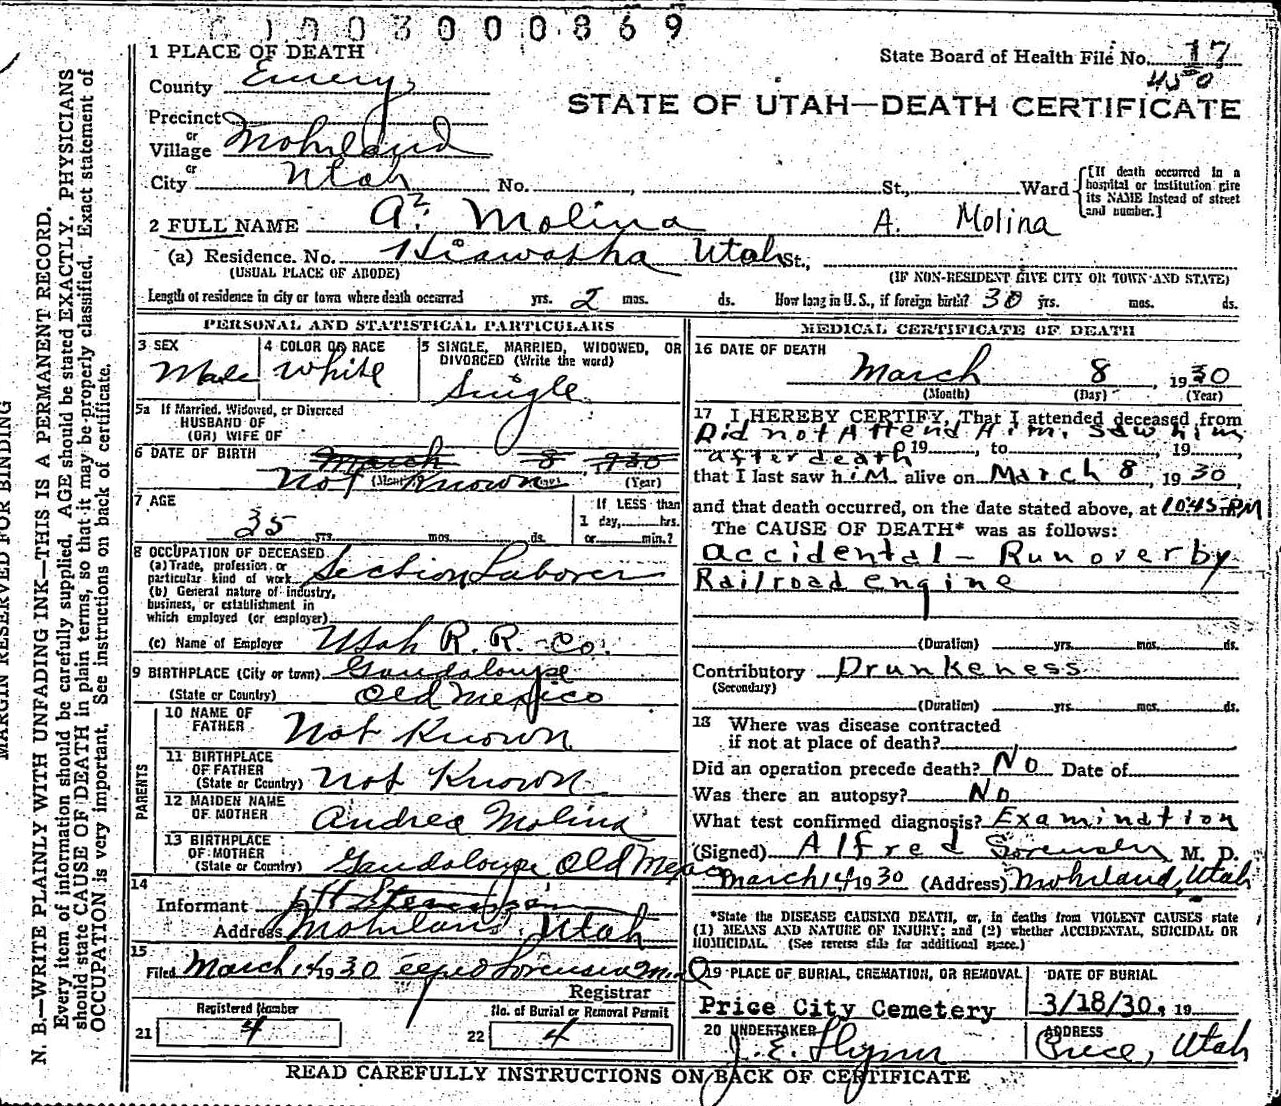 0 1 0 0 3 0 0 0 8 6 9
1 PLACE OF DEATH
State Board of Health File No. 17
450
County Emery
STATE OF UTAH—DEATH CERTIFICATE
Precinct
or
Village Mohrland
or
City Utah No. , St., Ward
[If death occurred in a hospital or institution give its NAME instead of street and number.]
2 FULL NAME A. Molina A. Molina
(a) Residence. No. Hiawatha Utah St.,
(USUAL PLACE OF ABODE) (IF NON-RESIDENT GIVE CITY OR TOWN AND STATE)
Length of residence in city or town where death occurred yrs. 2 mos. ds. How long in U. S., if foreign birth? 30 yrs. mos. ds.
PERSONAL AND STATISTICAL PARTICULARS
3 SEX
Male
4 COLOR OR RACE
White
5 SINGLE, MARRIED, WIDOWED, OR DIVORCED (Write the word)
Single
5a If Married, Widowed, or Divorced
HUSBAND OF
(OR) WIFE OF
6 DATE OF BIRTH March 8, 1930
Not Known
(Month) (Day) (Year)
7 AGE
35 yrs. mos. ds.
If LESS than
1 day, hrs.
or min.?
8 OCCUPATION OF DECEASED
(a) Trade, profession or
particular kind of work Section Laborer
(b) General nature of industry,
business, or establishment in
which employed (or employer)
(c) Name of Employer Utah R. R. Co.
9 BIRTHPLACE (City or town) Gaudaloupe
(State or Country) Old Mexico
PARENTS
10 NAME OF
FATHER Not Known
11 BIRTHPLACE
OF FATHER
(State or Country) Not Known
12 MAIDEN NAME
OF MOTHER Andrea Molina
13 BIRTHPLACE
OF MOTHER
(State or Country) Gaudaloupe Old Mexico
14
Informant
Address Mohrland, Utah
15
Filed March 14 1930 Sorensen M.D.
Registrar
Registered Number
21 4
No. of Burial or Removal Permit
22 4
MEDICAL CERTIFICATE OF DEATH
16 DATE OF DEATH
March 8, 1930
(Month) (Day) (Year)
17 I HEREBY CERTIFY, That I attended deceased from
Did not Attend Him. Saw him
after death 19 , to , 19 ,
that I last saw him alive on March 8, 1930,
and that death occurred, on the date stated above, at 10:45 PM
The CAUSE OF DEATH* was as follows:
Accidental - Run over by
Railroad engine
(Duration) yrs. mos. ds.
Contributory Drunkeness
(Secondary)
(Duration) yrs. mos. ds.
18 Where was disease contracted
if not at place of death?
Did an operation precede death? No Date of
Was there an autopsy? No
What test confirmed diagnosis? Examination
(Signed) Alfred Sorensen M. D.
March 14 1930 (Address) Mohrland, Utah
*State the DISEASE CAUSING DEATH, or, in deaths from VIOLENT CAUSES state
(1) MEANS AND NATURE OF INJURY; and (2) whether ACCIDENTAL, SUICIDAL OR
HOMICIDAL. (See reverse side for additional space.)
19 PLACE OF BURIAL, CREMATION, OR REMOVAL
Price City Cemetery
DATE OF BURIAL
3/18/30, 19
20 UNDERTAKER
J. E. Flynn
ADDRESS
Price, Utah
READ CAREFULLY INSTRUCTIONS ON BACK OF CERTIFICATE
MARGIN RESERVED FOR BINDING
N. B.—WRITE PLAINLY WITH UNFADING INK—THIS IS A PERMANENT RECORD.
Every item of information should be carefully supplied. AGE should be stated EXACTLY. PHYSICIANS
should state CAUSE OF DEATH in plain terms, so that it may be properly classified. Exact statement of
OCCUPATION is very important. See instructions on back of certificate.